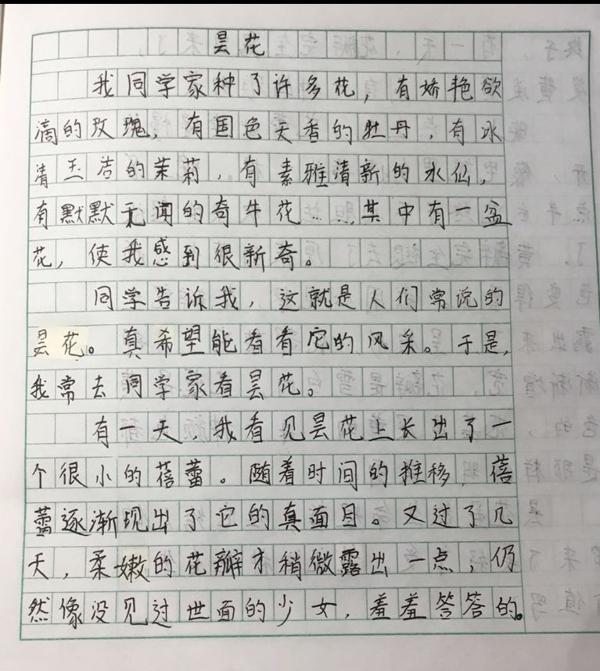 昙花
我同学家种了许多花，有娇艳欲
滴的玫瑰，有国色天香的牡丹，有冰
清玉洁的茉莉，有素雅清新的水仙，
有默默无闻的奇牛花……其中有一盆
花，使我感到很新奇。
同学告诉我，这就是人们常说的
昙花。真希望能看看它的风采。于是，
我常去同学家看昙花。
有一天，我看见昙花上长出了一
个很小的蓓蕾。随着时间的推移，蓓
蕾逐渐现出了它的真面目。又过了几
天，柔嫩的花瓣才稍微露出一点，仍
然像没见过世面的少女，羞羞答答的。